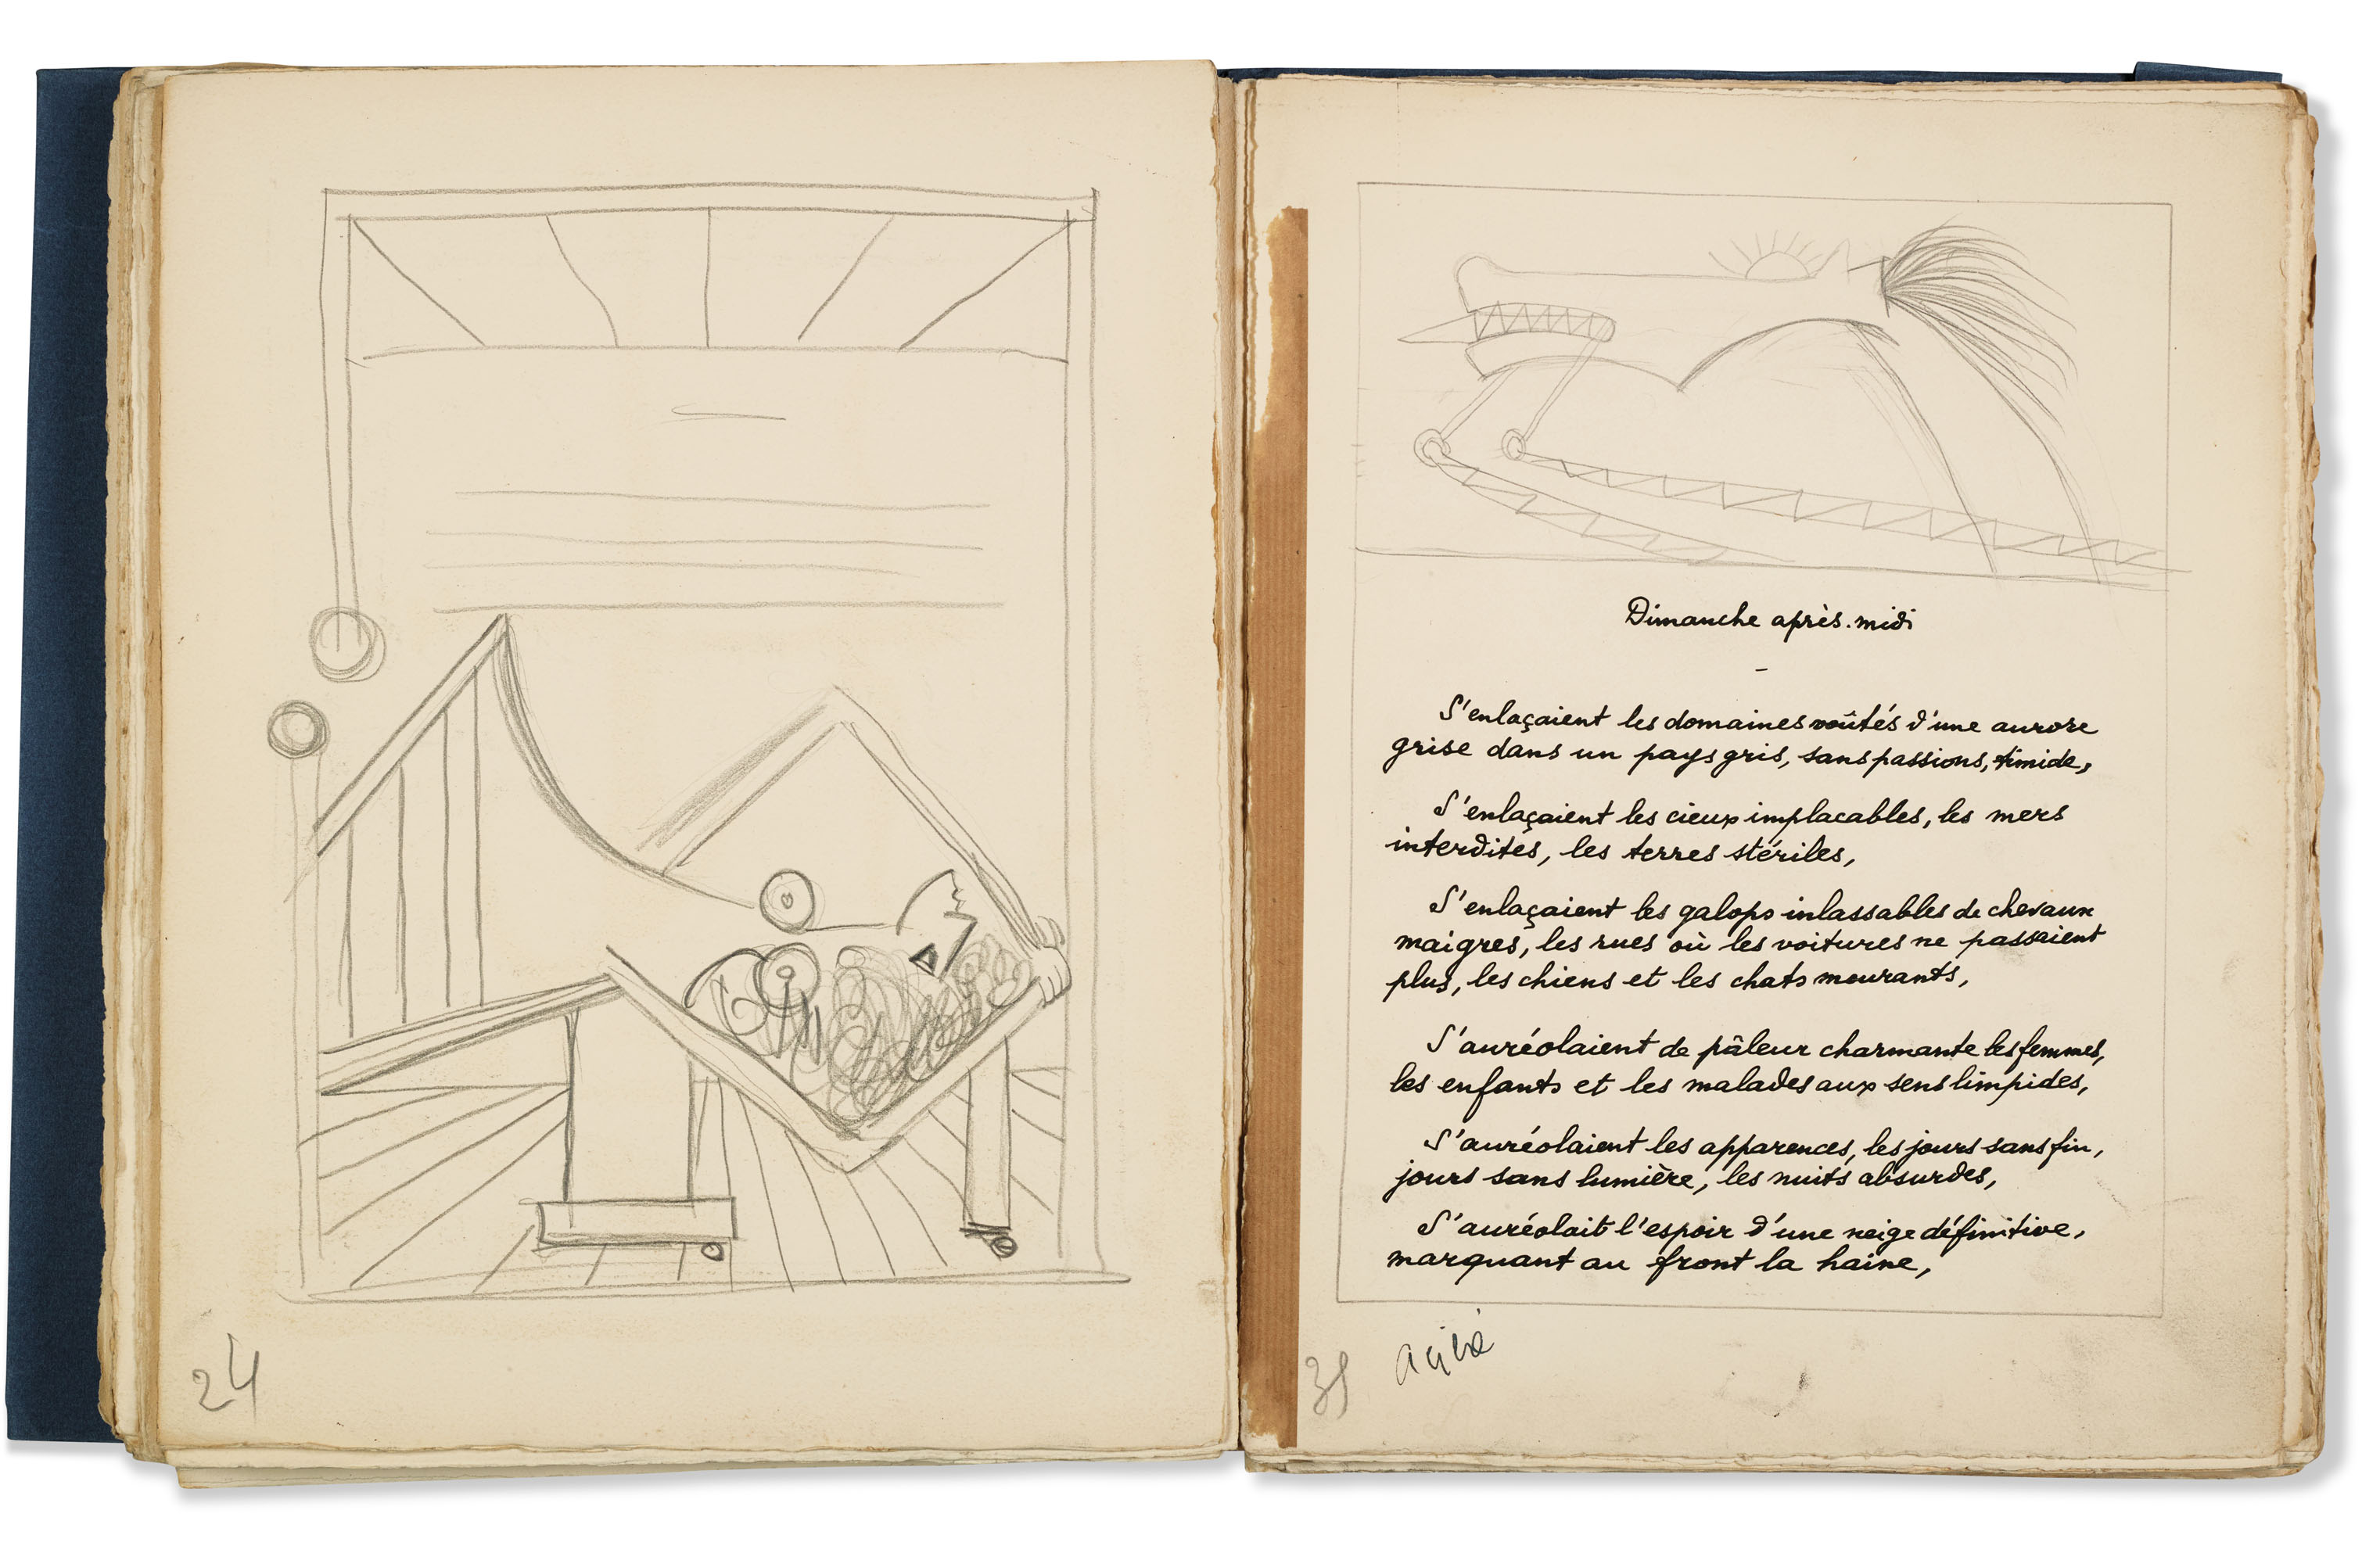 24
Dimanche après-midi
-
S'enlaçaient les domaines voûtés d'une aurore
grise dans un pays gris, sans passions, timide,
S'enlaçaient les cieux implacables, les mers
interdites, les terres stériles,
S'enlaçaient les galops inlassables de chevaux
maigres, les rues où les voitures ne passaient
plus, les chiens et les chats mourants,
S'auréolaient de pâleur charmante les femmes,
les enfants et les malades aux sens limpides,
S'auréolaient les apparences, les jours sans fin,
jours sans lumière, les nuits absurdes,
S'auréolait l'espoir d'une neige définitive,
marquant au front la haine,